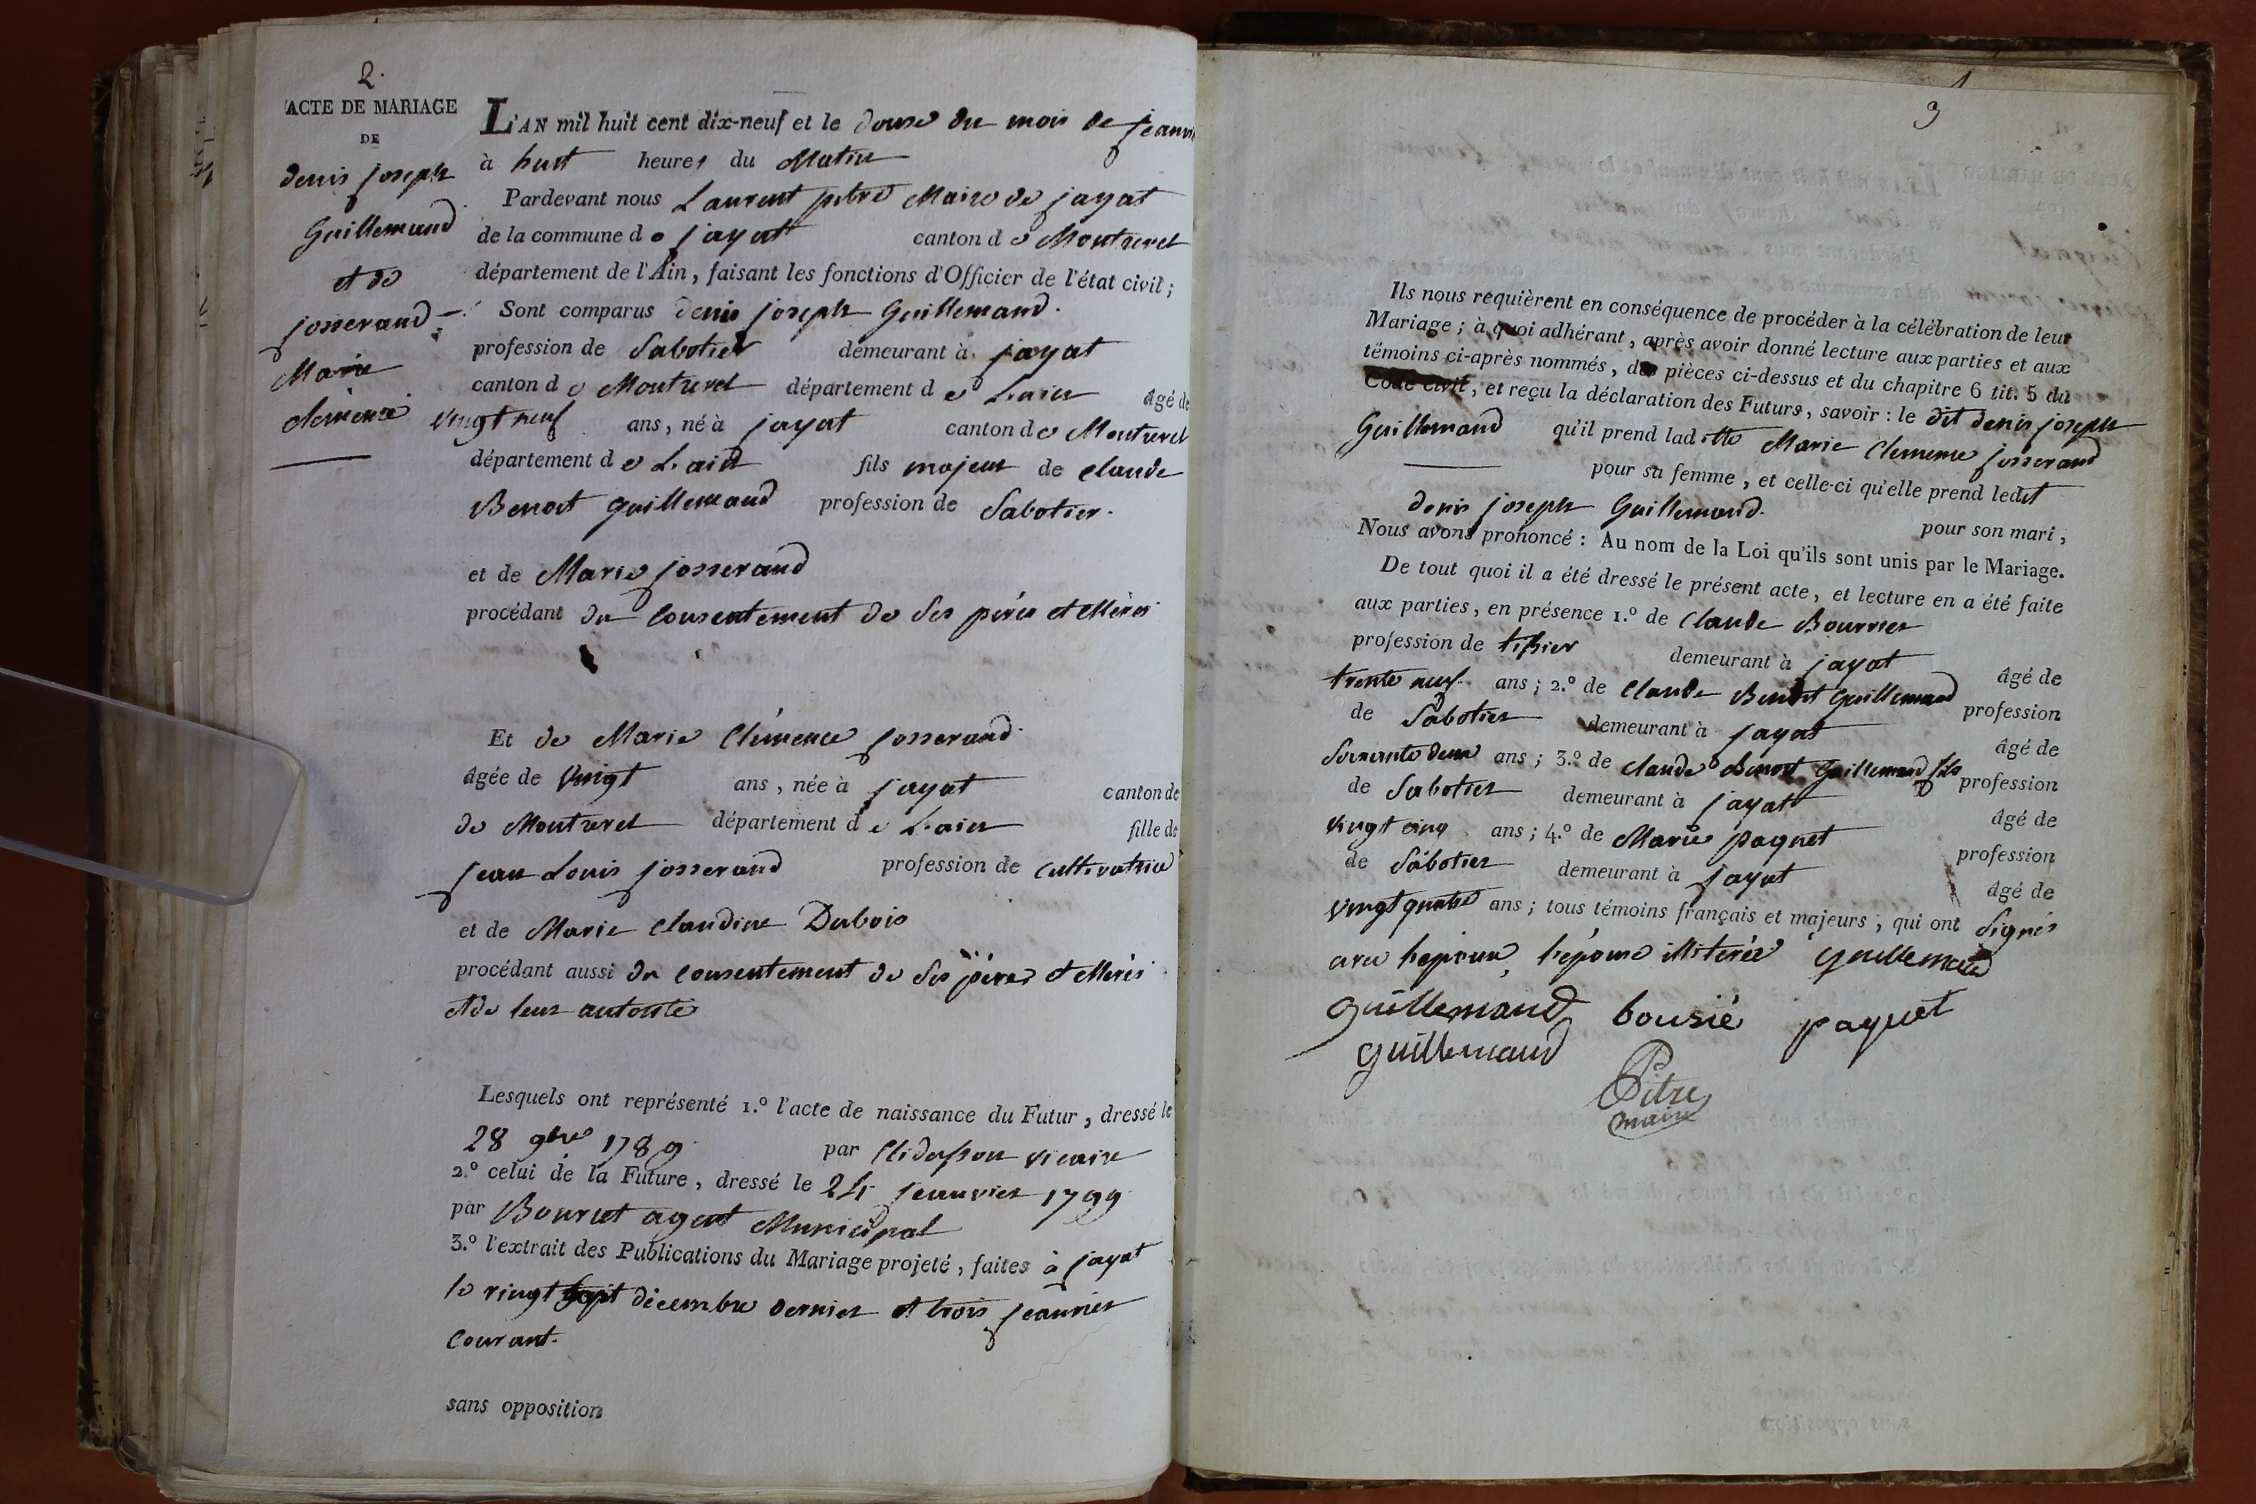 2.
ACTE DE MARIAGE
DE
denis joseph
Guillemaud
et de
josserand
Marie
clémence
L'AN mil huit cent dix-neuf et le douze du mois de jeanvi
à huit heures du Matin
Pardevant nous Laurent pitre Maire de jayat
de la commune de jayat canton de Montrevel
département de l'Ain, faisant les fonctions d'Officier de l'état civil;
Sont comparus denis joseph Guillemaud.
profession de Sabotier demeurant à jayat
canton de Montrevel département de L'ain âgé de
vingt neuf ans, né à jayat canton de Montrevel
département de L'ain fils majeur de claude
Benoit guillemaud profession de Sabotier.
et de Marie josserand
procédant du consentement de ses pères et Mères
Et de Marie Clémence josserand.
âgée de vingt ans, née à jayat canton de
de Montrevel département de L'ain fille de
jean Louis josserand profession de cultivatrice
et de Marie claudine Dubois
procédant aussi du consentement de ses pères et Mères
et de leur autorité
Lesquels ont représenté 1.º l'acte de naissance du Futur, dressé le
28 9bre 1789 par vicaire
2.º celui de la Future, dressé le 24 jeanvier 1799
par Bourcet agent Municipal
3.º l'extrait des Publications du Mariage projeté, faites à jayat
le vingt sept décembre dernier et trois jeanvier
courant.
sans opposition
3
Ils nous requièrent en conséquence de procéder à la célébration de leur
Mariage; à quoi adhérant, après avoir donné lecture aux parties et aux
témoins ci-après nommés, des pièces ci-dessus et du chapitre 6 tit. 5 du
Code civil, et reçu la déclaration des Futurs, savoir: le dit denis joseph
Guillemaud qu'il prend laditte Marie Clemence josserand
pour sa femme, et celle-ci qu'elle prend ledit
denis joseph Guillemaud. pour son mari,
Nous avons prononcé: Au nom de la Loi qu'ils sont unis par le Mariage.
De tout quoi il a été dressé le présent acte, et lecture en a été faite
aux parties, en présence 1.º de Claude Bourrier
profession de tissier demeurant à jayat âgé de
trente neuf ans; 2.º de Claude Benoit guillemaud profession
de Sabotier demeurant à jayat âgé de
Soixante deux ans; 3.º de claude Benoit guillemaud fils profession
de Sabotier demeurant à jayat âgé de
vingt cinq ans; 4.º de Marie paquet profession
de Sabotier demeurant à jayat âgé de
vingt quatre ans; tous témoins français et majeurs, qui ont Signés
avec l'epoux, l'épouse illiterée guillemaud
guillemaud bousié paquet
guillemaud
Pitre
maire